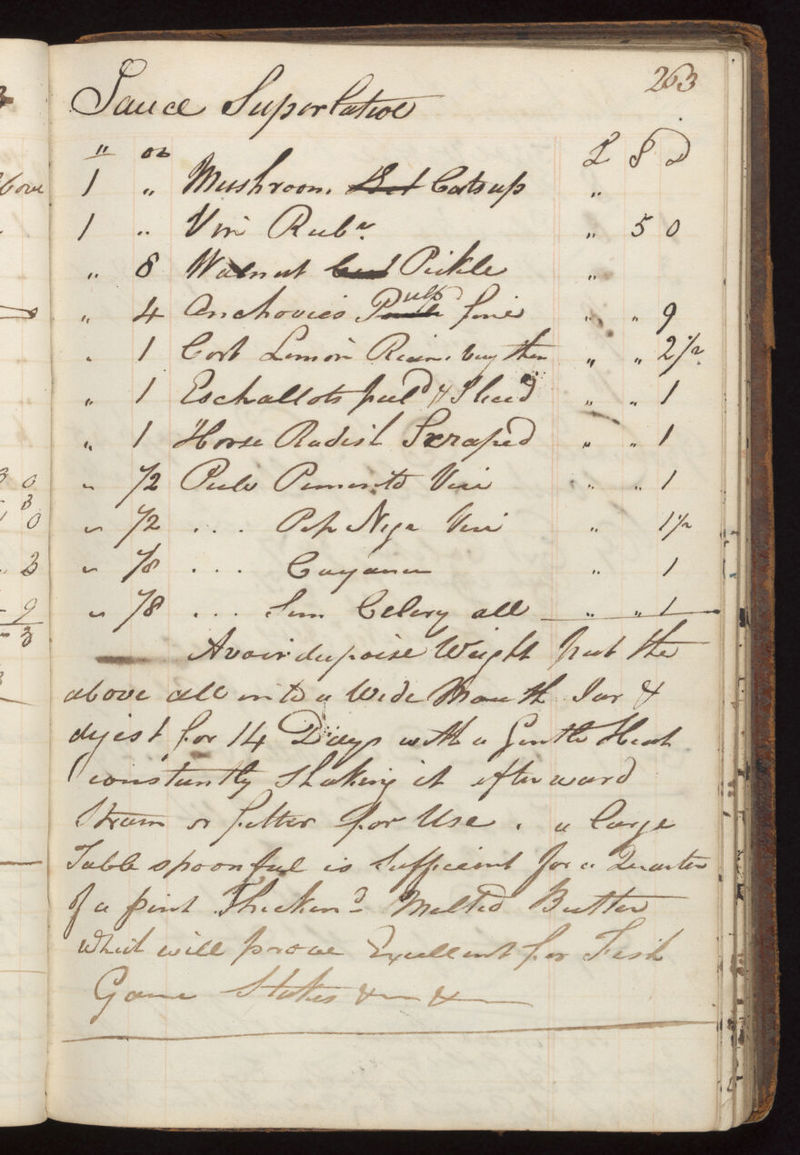 263
Sauce Superlative
" oz £ S D
1 " Mushroom Catsup "
1 " Vin Rubr " 5 0
" 8 Walnut Pickle "
" 4 Anchovies Pulp fine " " 9
" 1 Cort Limon Recen. very thin " " 2 1/2
" 1 Eschallots peel'd & Slic'd " " 1
" 1 Horse Radish Scraped " " 1
" 1/2 Pulv Pimento Veri " " 1
" 1/2 . . . Pip Nigr Veri " 1 1/2
" 1/8 . . . Cayenne " 1
" 1/8 . . . Sem Celery all " " 1
Avoirdupoise Weight put the
above all into a Wide Mouth Jar &
dijest for 14 Days with a Gentle Heat
constantly Shaking it afterward
Strain or filter for Use . a large
Table spoonful is Sufficient for a Quarter
of a pint Thicken'd Melted Butter
which will prove Excellent for Fish
Game Stakes & &
bove
3 0
3
0
3
9
3